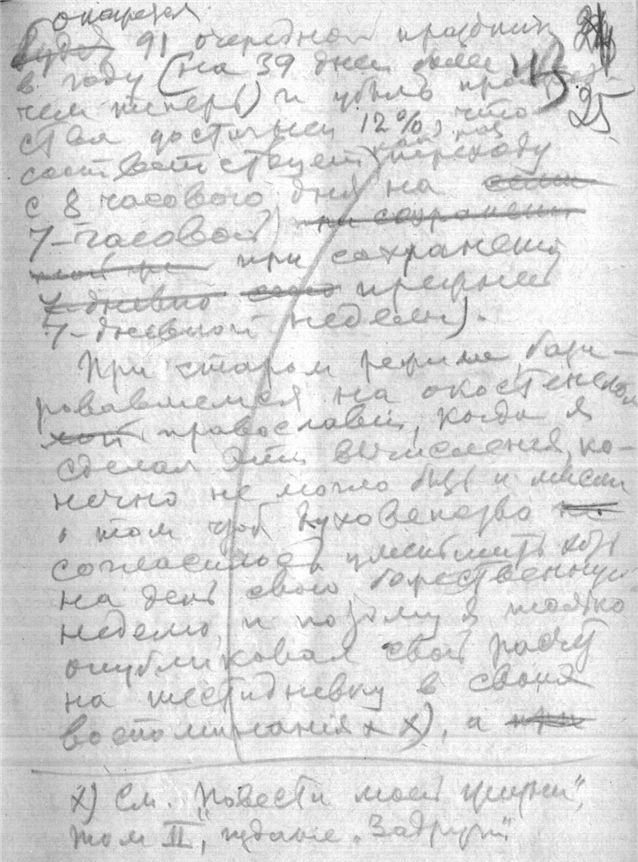 окажется
будет 91 очередной праздник
в году (на 39 дней более 25
чем теперь) и убыль
ства достигнет 12%, что
соответствует переходу
с 8 часового дня на
7-часовой) при сохранении
при сохранении
7-дневно прежней
7-дневной недели).
При старом режиме, бази-
ровавшемся на окостенелом
православии, когда я
сделал эти вычисления, ко-
нечно не могло быть и мысли
о том чтоб духовенство не
согласилось уменьшить хоть
на день свою божественную
неделю, и поэтому я только
опубликовал свой расчет
на шестидневку в своих
воспоминаниях x), а при
x) См. "Повести моей жизни",
том II, издание "Задруги"